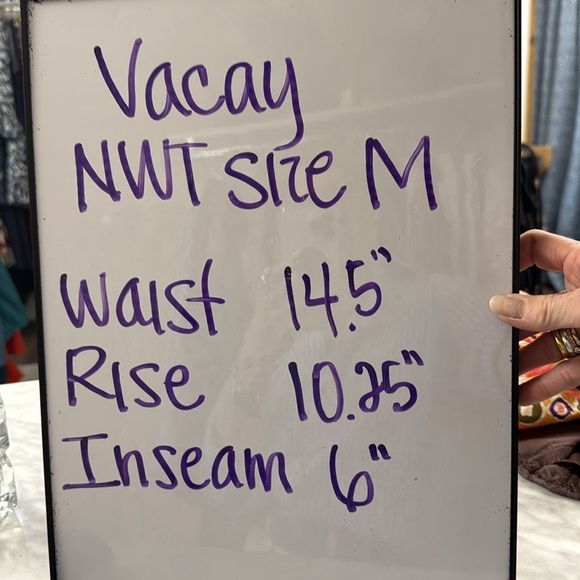 Vacay
NWT Size M
Waist 14.5"
Rise 10.25"
Inseam 6"